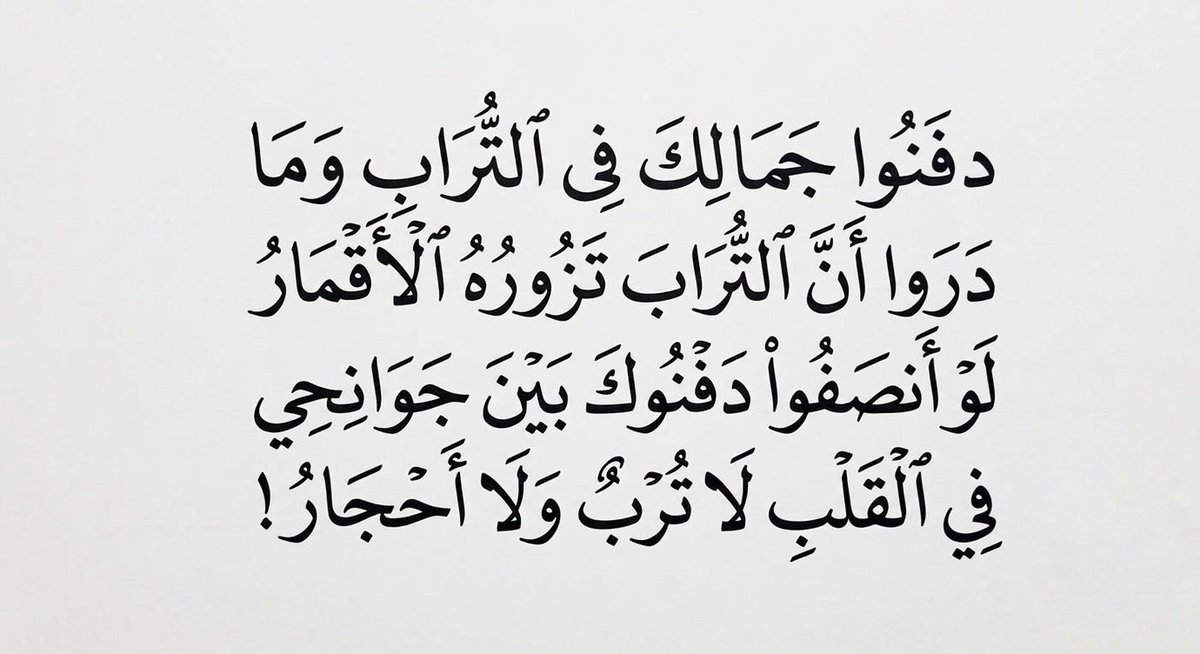 دفَنُوا جَمَالِكَ فِى ٱلتُّرَابِ وَمَا
دَرَوا أَنَّ ٱلتُّرَابَ تَزُورُهُ ٱلْأَقْمَارُ
لَوْ أَنصَفُواْ دَفْنُوكَ بَيْنَ جَوَانِحِي
فِي ٱلْقَلْبِ لَا تُرْبٌ وَلَا أَحْجَارُ!